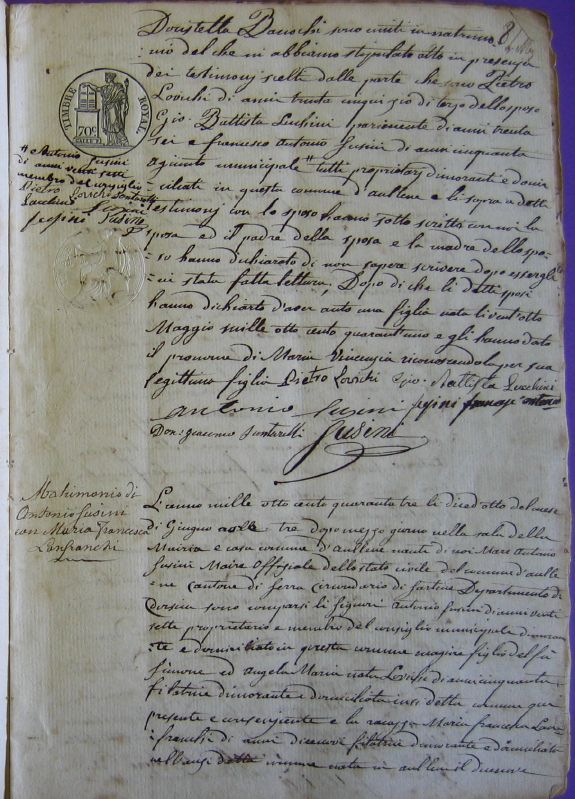 Doristella Banochi sono uniti in matrimo
nio del che ni abbiamo stipulato atto in presenza
dei testimonj scelti dalle parte che sono Pietro
Lovichi di anni trenta cinque zio di terzo dello sposo
Gio: Battista Luchini parimente di anni trenta
sei e francesco Antonio Susini di anni cinquanta
agiunto municipale # tutti proprietarj dimoranti e domi
ciliati in questa comune d'aullene e li sopra detti
testimonj con lo sposo hanno sotto scritto con noi la
sposa ed il padre della sposa e la madre dello spo
so hanno dichiarato di non sapere scrivere dopo essergli
ni stata fatta lettura, Dopo di che li detti sposi
hanno dichiarto d'aver auto una figlia nata li vent'otto
Maggio mille otto cento quarant'uno e gli hanno dato
il pronome di Maria Vincensia riconoscendola per sua
legittima figlia Pietro Lovichi Gio: Battista Lucchini
Antonio Susini
Don: giacomo Santarelli Susini
TIMBRE ROYAL
70c
# Antonio Susini
di anni venti sette
membro del consiglio
Pietro Lovichi Santarelli
Lucchini Susini
Susini
Matrimonio di
Antonio Susini
con Maria Francesca
Lanfranchi
L'anno mille otto cento quaranta tre li dieci otto del mese
di Giugno alle tre dopo mezzo giorno nella sala della
Mairia e casa comune d'aullene nanti di noi Marc Antonio
Susini Maire Offiziale dello stato civile del comune d'aulle
ne cantone di Serra circondario di Sartene Departimento di
Corsica sono comparsi li signori Antonio Susini di anni venti
sette proprietario e membro del consiglio municipale dimoran
te e domiciliato in questa comune magiore figlio del fù
Simone ed Angela Maria nata Lovichi di anni cinquanta
filatrice dimorante e domiciliata in su detta comune qui
presente e consenziente e la ragazza Maria francesca Lan
franchi di anni diecinove filatrice dimorante e domiciliata
nell'ansi detta comune nata in aullene il